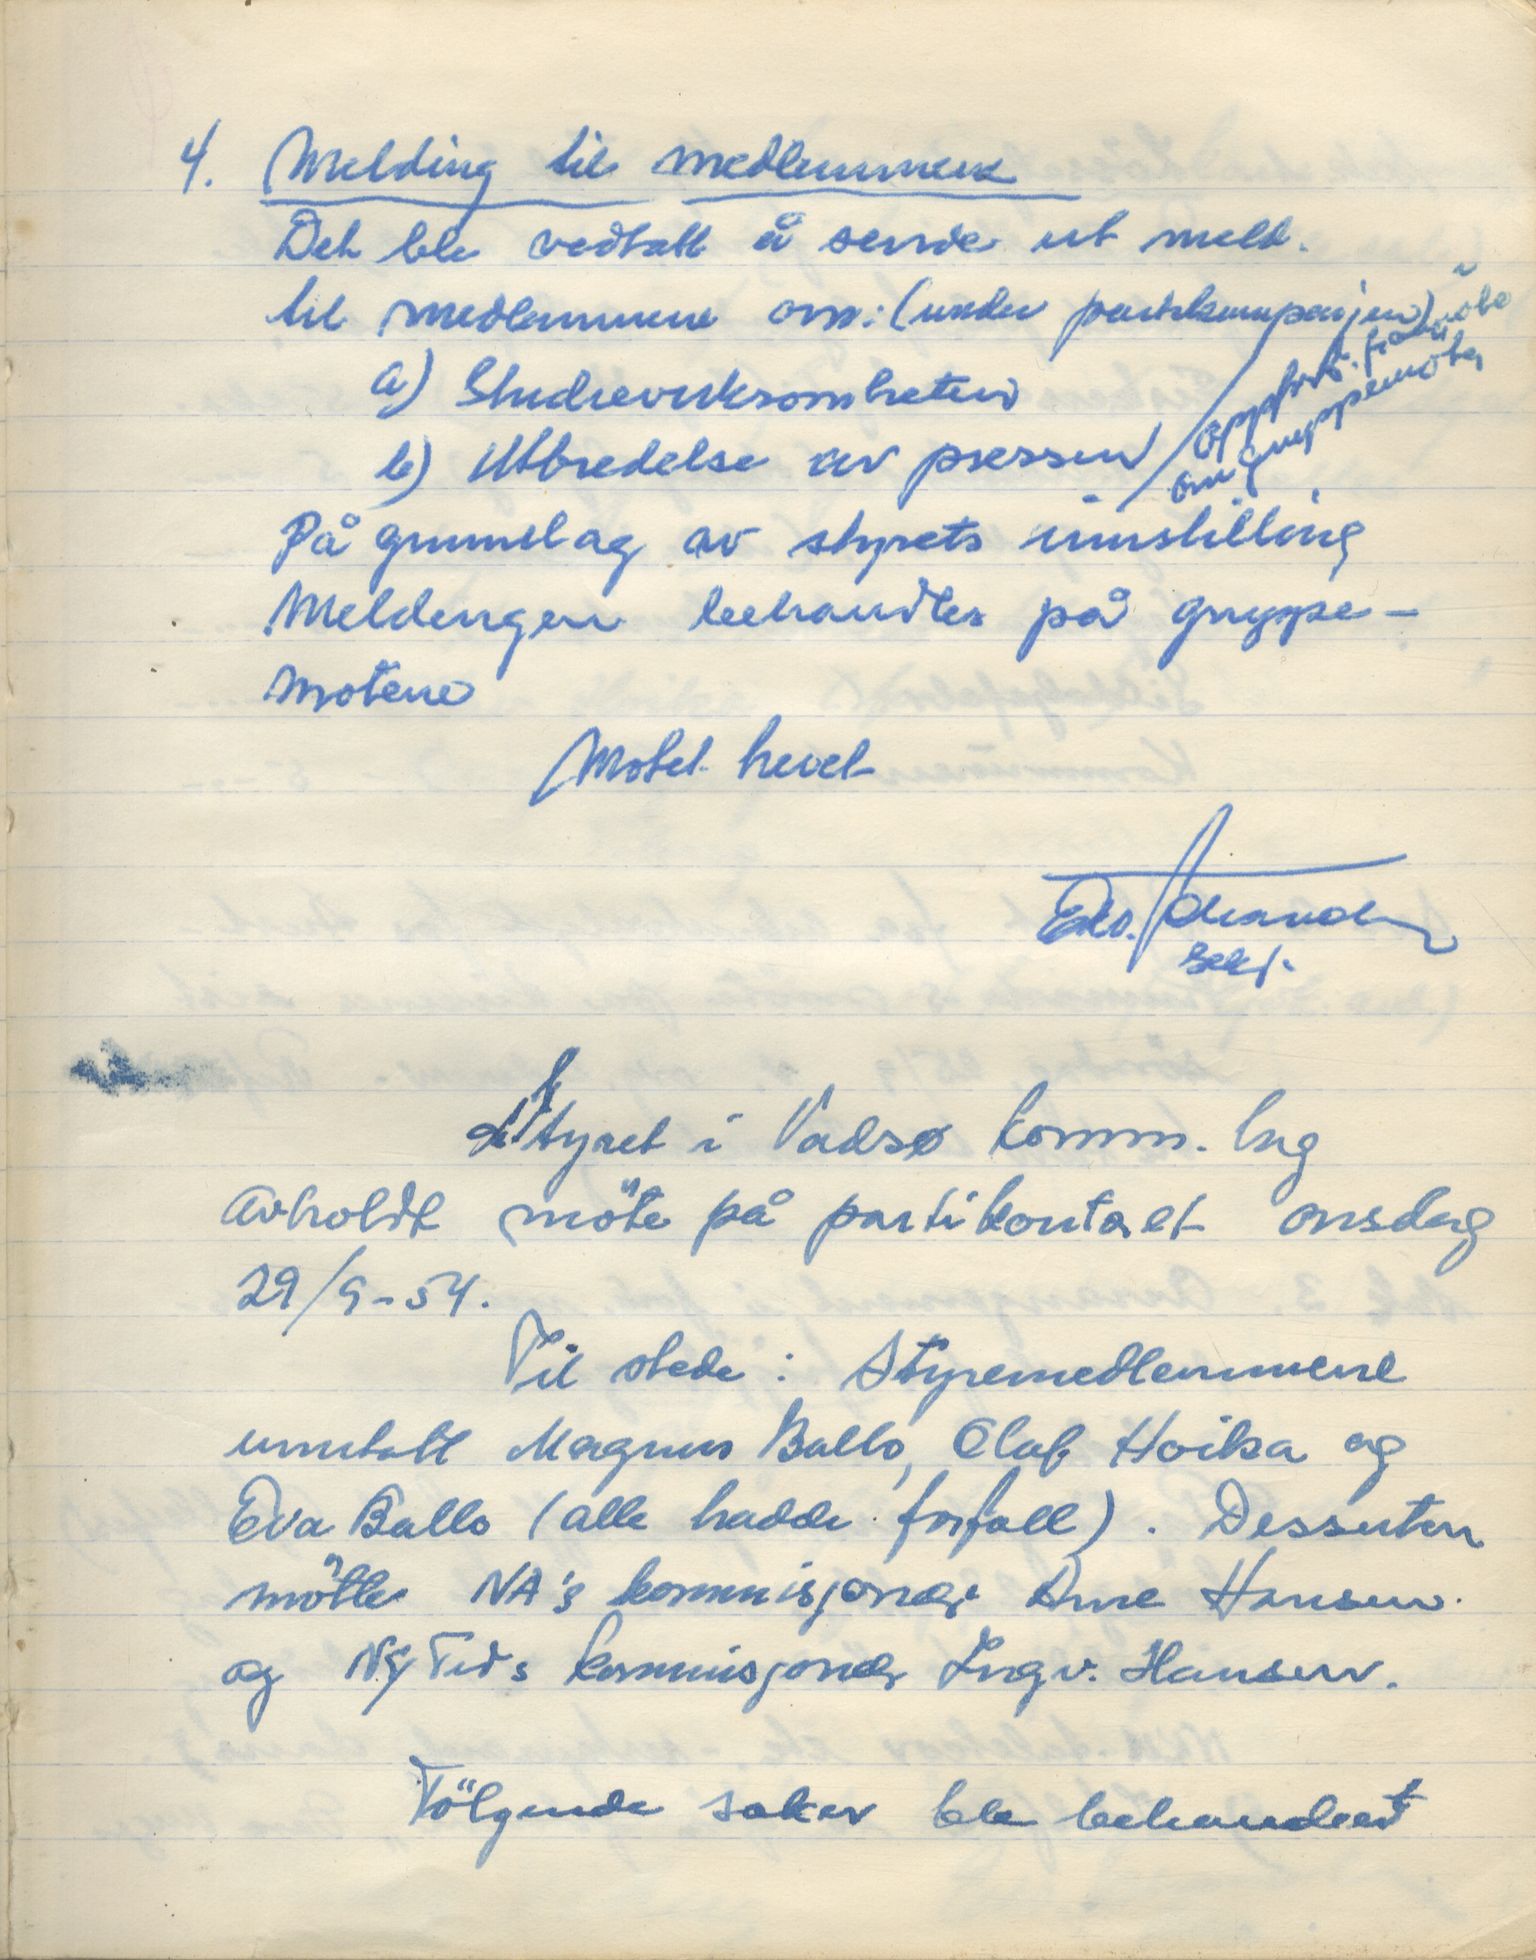 4. Melding til medlemmene
Det ble vedtatt å sende ut meld.
til medlemmene om: (under partikampanjen)
a) Studievirksomheten
b) Utbredelse av pressen
oppford. fram møte
om gruppemøter
På grunnlag av styrets innstilling
Meldingen behandles på gruppe-
møtene
Møtet hevet
sekr.
Styret i Vadsø komm. lag
avholdt möte på partikontoret onsdag
29/9-54.
Til stede: Styremedlemmene
unntatt Magnus Ballo, Olaf Hoika og
Eva Ballo (alle hadde forfall). Dessuten
mötte NA's kommisjonær Arne Hansen.
og Ny Tids kommisjonær Ingv. Hansen.
Fölgende saker ble behandlet